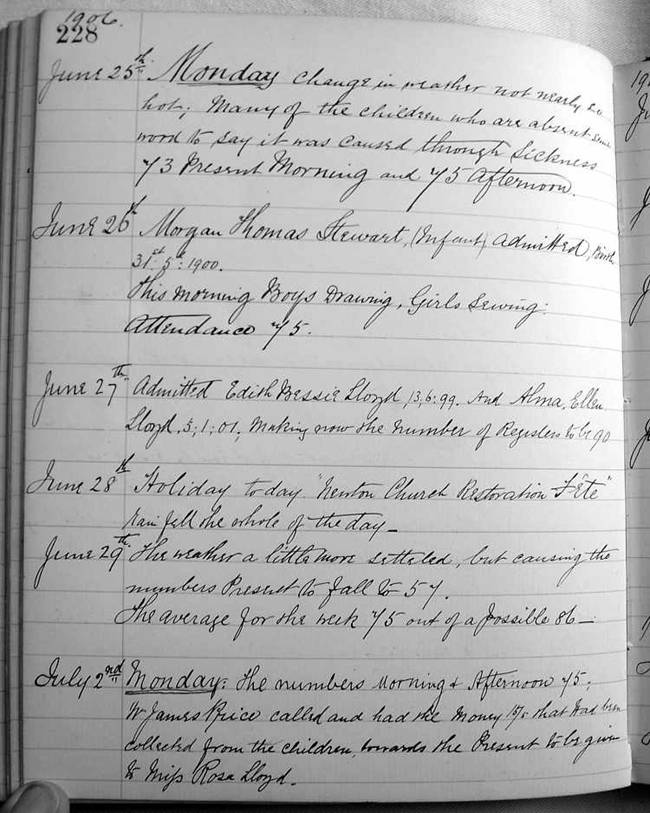 1906.
228
June 25th Monday change in weather not nearly so
hot; Many of the children who are absent send
word to say it was caused through Sickness
73 Present Morning and 75 Afternoon.
June 26th Morgan Thomas Stewart, (Infant) admitted, Birth
31st 5th 1900.
This morning Boys Drawing, Girls Sewing.
Attendance 75.
June 27th Admitted Edith Bessie Lloyd 13; 6; 99. And Alma, Ellen
Lloyd, 3; 1; 01, Making now the number of Registers to be 90
June 28th Holiday today "Newton Church Restoration Fête"
rain fell the whole of the day_
June 29th The weather a little more settled, but causing the
numbers Present to fall to 57.
The average for the week 75 out of a possible 86_
July 2nd Monday: The numbers Morning & Afternoon 75;
James Price called and had the Money that had been
collected from the children, towards the Present to be given
to Miss Rosa Lloyd.